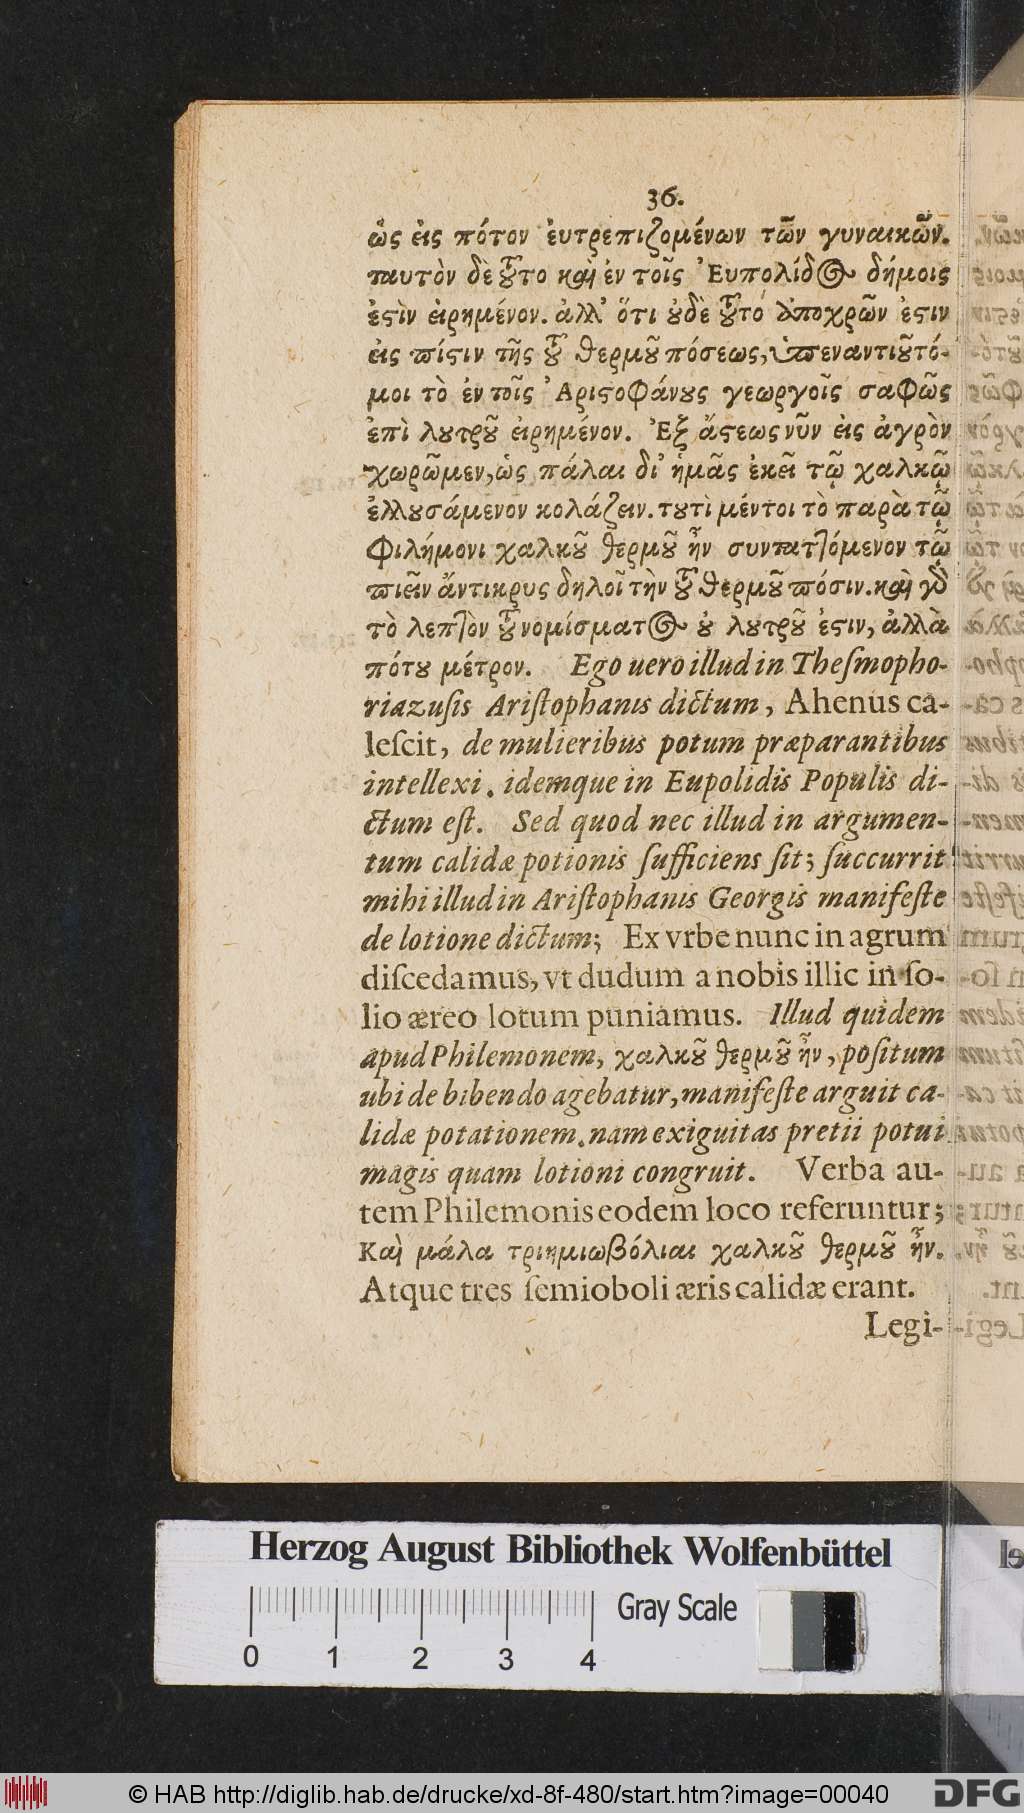 36.
ὡς εἰς πότον ἐυτρεπιζομένων τῶν γυναικῶν.
ταυτὸν δὲ τοῦτο καὶ ἐν τοῖς Ἐυπολίδος δήμοις
ἐστὶν εἰρημένον. ἀλλ' ὅτι οὐδὲ τοῦτό ἀποχρῶν ἐστιν
εἰς πίστιν τῆς τοῦ θερμοῦ πόσεως, ὑπεναντιοῦτό-
μοι τὸ ἐν τοῖς Ἀριστοφάνους γεωργοῖς σαφῶς
ἐπὶ λουτροῦ εἰρημένον. Ἐξ ἄστεως νῦν εἰς ἀγρὸν
χωρῶμεν, ὡς πάλαι δι' ἡμᾶς ἐκεῖ τῷ χαλκῷ
ἐλλουσάμενον κολάζειν. τουτὶ μέντοι τὸ παρὰ τῷ
Φιλήμονι χαλκοῦ θερμοῦ ἦν συνταττόμενον τῷ
πιεῖν ἄντικρυς δηλοῖ τὴν τοῦ θερμοῦ πόσιν. καὶ γὰρ
τὸ λεπτὸν τοῦ νομίσματος οὐ λουτροῦ ἐστιν, ἀλλὰ
πότου μέτρον. Ego uero illud in Theſmopho-
riazuſis Ariſtophanis dictum, Ahenus ca-
leſcit, de mulieribus potum præparantibus
intellexi. idemque in Eupolidis Populis di-
ctum eſt. Sed quod nec illud in argumen-
tum calidæ potionis ſufficiens ſit; ſuccurrit
mihi illud in Ariſtophanis Georgis manifeſte
de lotione dictum; Ex vrbe nunc in agrum
diſcedamus, vt dudum a nobis illic in ſo-
lio æreo lotum puniamus. Illud quidem
apud Philemonem, χαλκοῦ θερμοῦ ἦν, poſitum
ubi de bibendo agebatur, manifeſte arguit ca-
lidæ potationem. nam exiguitas pretii potui
magis quam lotioni congruit. Verba au-
tem Philemonis eodem loco referuntur;
Καὶ μάλα τριημιωβόλιαι χαλκοῦ θερμοῦ ἦν.
Atque tres ſemioboli æris calidæ erant.
Legi-
Herzog August Bibliothek Wolfenbüttel
Gray Scale
0 1 2 3 4
© HAB http://diglib.hab.de/drucke/xd-8f-480/start.htm?image=00040
DFG